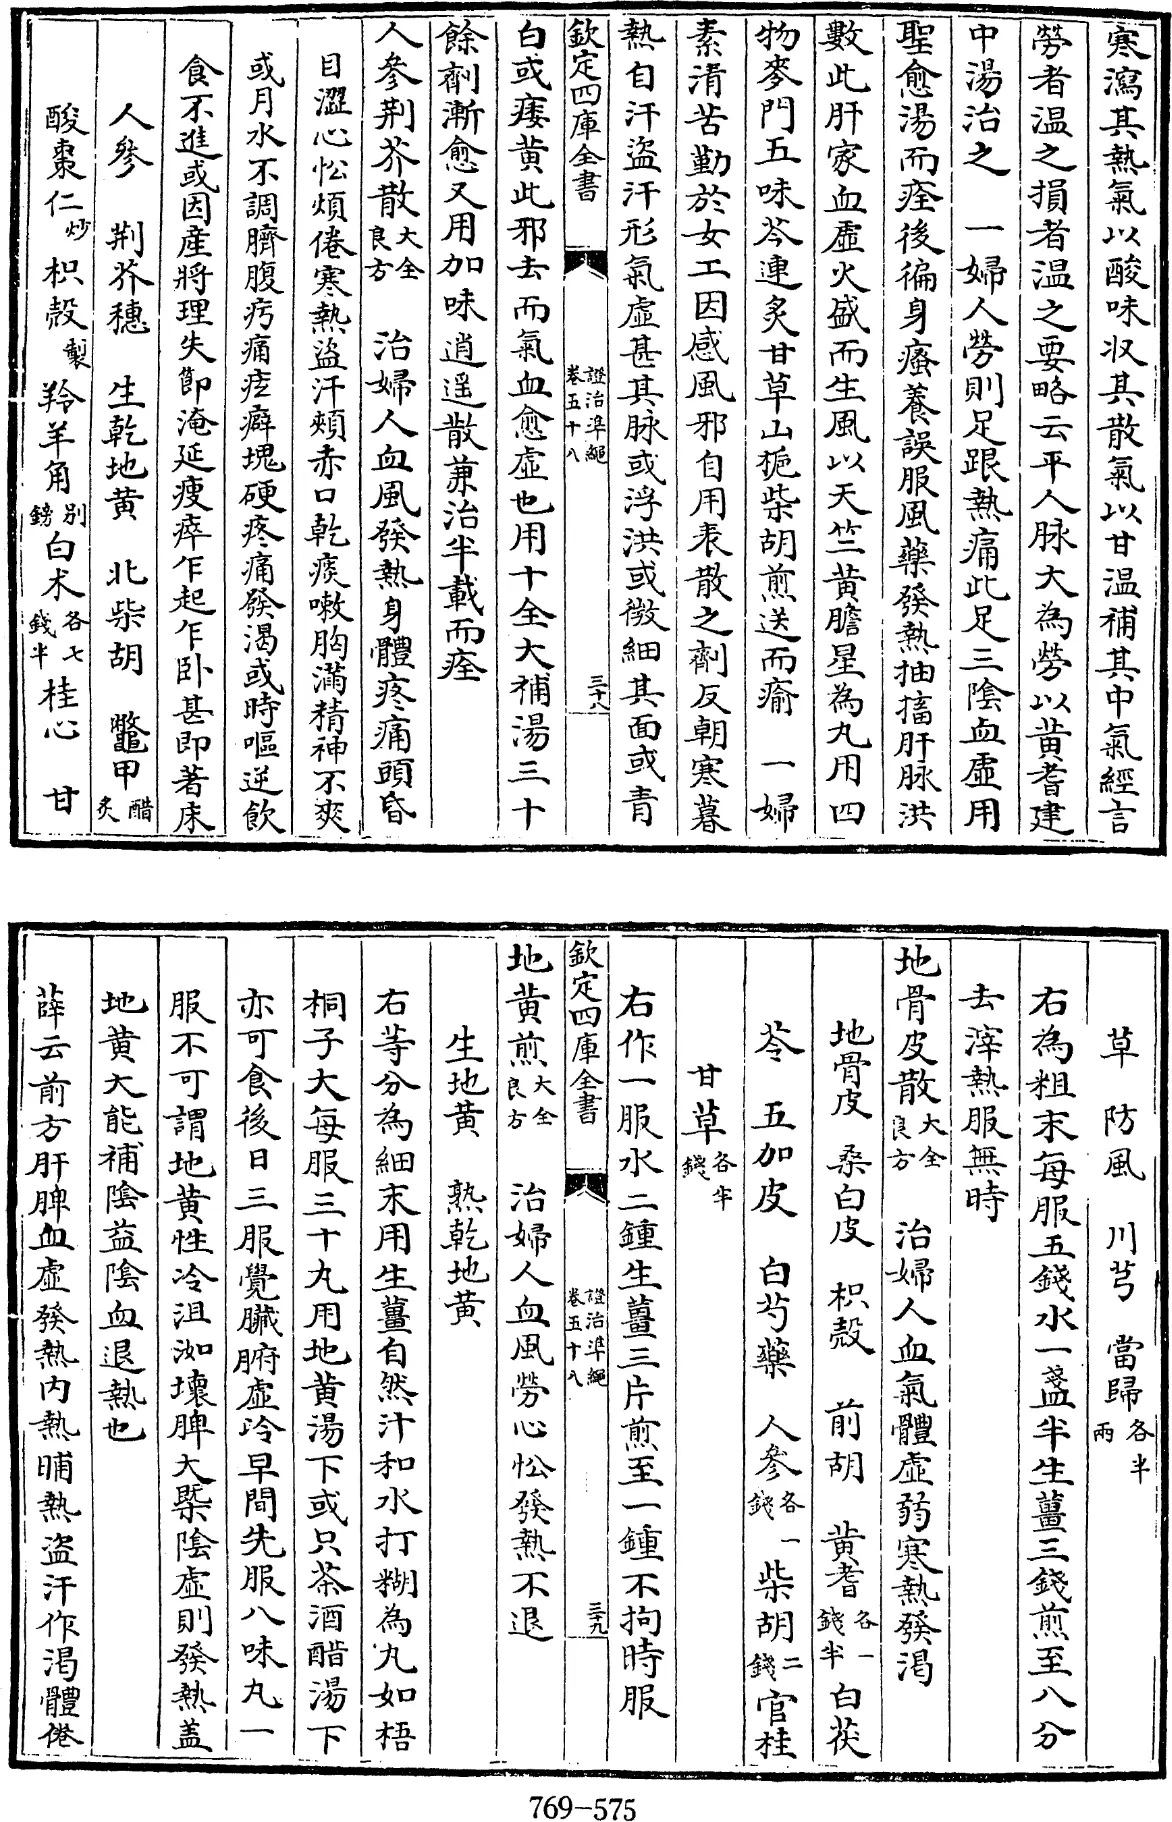 寒瀉其熱氣以酸味收其散氣以甘温補其中氣經言
勞者温之損者温之要略云平人脉大為勞以黄耆建
中湯治之　一婦人勞則足跟熱痛此足三陰血虛用
聖愈湯而痊後徧身瘙養誤服風藥發熱抽搐肝脉洪
數此肝家血虛火盛而生風以天竺黄膽星為丸用四
物麥門五味芩連炙甘草山梔柴胡煎送而瘉　一婦
素清苦勤於女工因感風邪自用表散之劑反朝寒暮
熱自汗盜汗形氣虛甚其脉或浮洪或微細其面或青
欽定四庫全書　證治準繩卷五十八　三十八
白或痿黄此邪去而氣血愈虛也用十全大補湯三十
餘劑漸愈又用加味逍遥散兼治半載而痊
人參荆芥散大全良方　治婦人血風發熱身體疼痛頭昏
目澀心忪煩倦寒熱盜汗頰赤口乾痰嗽胸滿精神不爽
或月水不調臍腹疞痛痃癖塊硬疼痛發渴或時嘔逆飲
食不進或因産將理失節淹延瘦瘁乍起乍卧甚即著床
人參　荆芥穗　生乾地黄　北柴胡　鼈甲醋炙
酸棗仁炒　枳殻製　羚羊角别鎊　白术各七錢半　桂心　甘
草　防風　川芎　當歸各半兩
右為粗末每服五錢水一盞半生薑三錢煎至八分
去滓熱服無時
地骨皮散大全良方　治婦人血氣體虛弱寒熱發渴
地骨皮　桑白皮　枳殻　前胡　黄耆各一錢半　白茯
苓　五加皮　白芍藥　人參各一錢　柴胡二錢　官桂
甘草各半錢
右作一服水二鍾生薑三片煎至一鍾不拘時服
欽定四庫全書　證治準繩卷五十八　三十九
地黄煎大全良方　治婦人血風勞心忪發熱不退
生地黄　熟乾地黄
右等分為細末用生薑自然汁和水打糊為丸如梧
桐子大每服三十丸用地黄湯下或只茶酒醋湯下
亦可食後日三服覺臟腑虛冷早間先服八味丸一
服不可謂地黄性冷沮洳壞脾大槩陰虛則發熱蓋
地黄大能補陰益陰血退熱也
薛云前方肝脾血虛發熱内熱晡熱盜汗作渴體倦
769-575